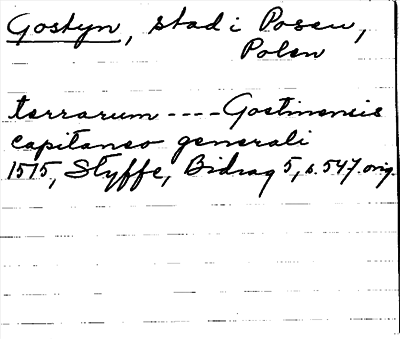 Gostyn, stad i Posen,
Polen
terrarum ---- Gostinensis
capitaneo generali
1515, Styffe, Bidrag 5, s. 547. orig.